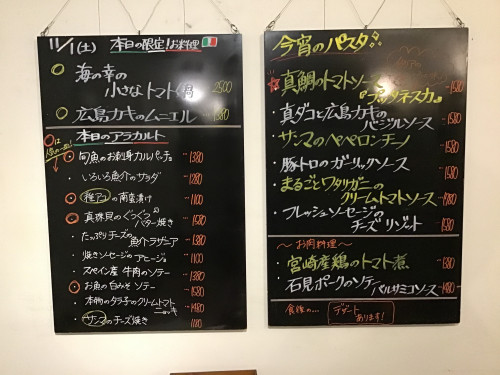 11/1(土) 本日の限定!お料理
海の幸の
小さなトマト鍋 2500
広島カキのムニエル 1580
本日のアラカルト
旬魚のお刺身カルパッチョ 1380
いろいろ魚介のサラダ 1280
稚アユの南蛮漬け 1100
真珠貝のくつくつ
バター焼き 1580
たっぷりチーズの
魚介ラザニア 1380
焼きソーセージのアヒージョ 1100
スペイン産 牛肉のソテー 1380
お魚の白みそソテー 1580
本物のタラ子のクリームトマト
ニョッキ 1480
サンマのチーズ焼き 1180
今宵のパスタ
真鯛のトマトソース 1580
『プッタネスカ』
真ダコと広島カキの
バジルソース 1580
サンマのペペロンチーノ 1580
豚トロのガーリックソース 1580
まるごとワタリガニの
クリームトマトソース 1580
フレッシュソーセージの
チーズリゾット 1580
〜お肉料理〜
宮崎産鶏のトマト煮 1380
石見ポークのソテー
バルサミコソース 1480
食後の...
デザート
あります!